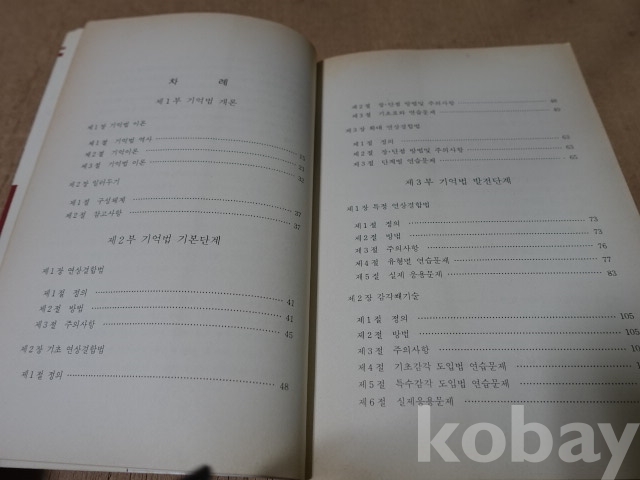 차 례
제1부 기억법 개론
제1장 기억법 이론
제1절 기억법 역사
제2절 기억이론 15
제3절 기억법 이론 21
37
제1절 구성체계 37
제2절 참고사항 37
제2부 기억법 기본단계
제1장 연상결합법
제1절 정의 41
제2절 방법 41
제3절 주의사항 45
제2장 기초 연상결합법
제1절 정의 48
제2절 장·단점 방법및 주의사항 48
제3절 기초호와 연습문제
제3장 확대 연상결합법
제1절 정의 63
제2절 장·단점 방법및 주의사항 63
제3절 단계별 연습문제 65
제3부 기억법 발전단계
제1장 특정 연상결합법
제1절 정의 73
제2절 방법 73
제3절 주의사항 76
제4절 유형별 연습문제 77
제5절 실제 응용문제 83
제2장 감각쾌기술
제1절 정의 105
제2절 방법 105
제3절 주의사항
제4절 기초감각 도입법 연습문제
제5절 특수감각 도입법 연습문제
제6절 실제응용문제
kobay